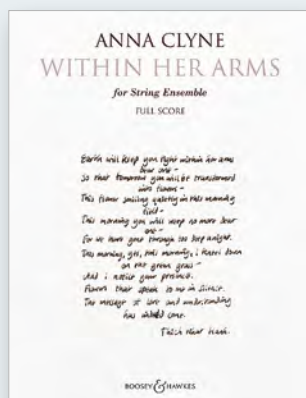 ANNA CLYNE
WITHIN HER ARMS
for String Ensemble
FULL SCORE
Earth will keep you tight within her arms
dear one –
So that tomorrow you will be transformed
into flowers –
This flower smiling quietly in this morning
field –
This morning you will weep no more dear
one –
For we have gone through too deep a night.
This morning, yes, this morning, I kneel down
on the green grass –
And I notice your presence.
Flowers that speak to me in silence.
The message of love and understanding
has indeed come.
Thich Nhat Hanh.
BOOSEY & HAWKES